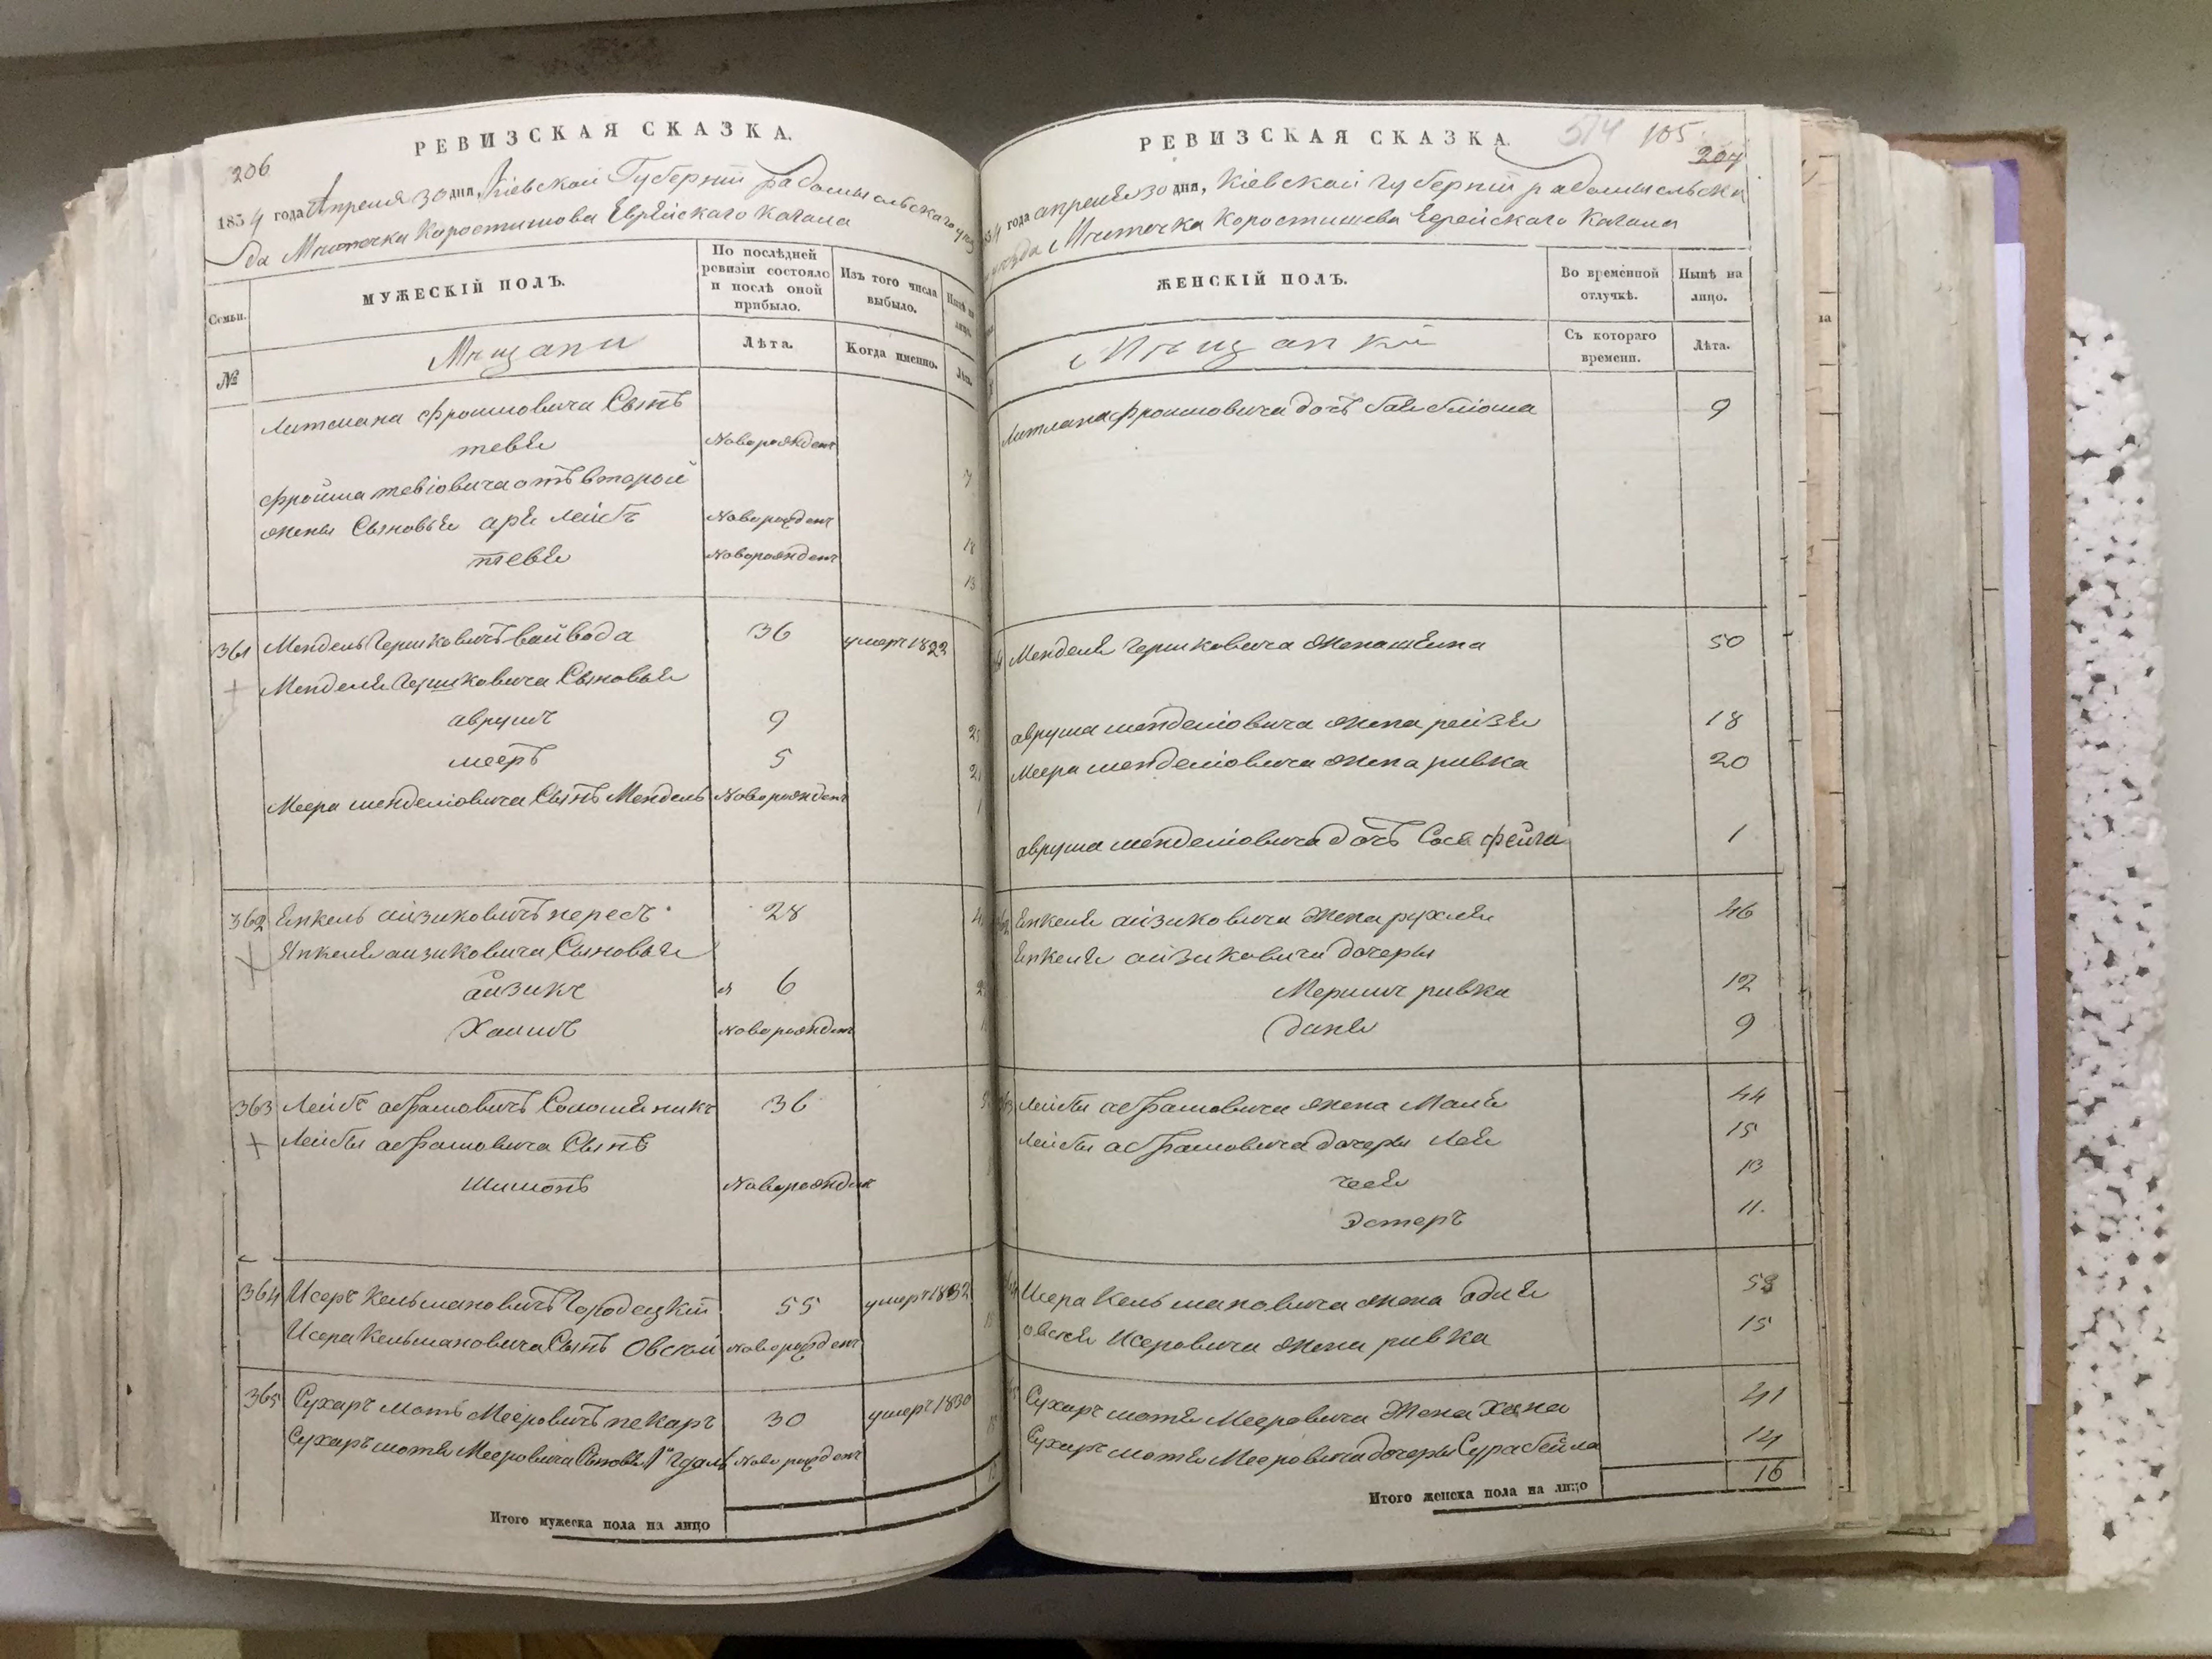 РЕВИЗСКАЯ СКАЗКА.
206
1834 года Апреля 30 дня, Кіевской Губерніи радомысльского уез
да Мисточка Коростишова Еврейскаго Кагала
Семьи.
МУЖЕСКІЙ ПОЛЪ.
По послѣдней ревизіи состояло и послѣ оной прибыло.
Изъ того числа выбыло.
Нынѣ на лицо.
№
Мѣщани
Лѣта.
Когда именно.
Лѣта.
Литмана Фроимовича Сынъ
тевье Новорожденъ
Фройма тевіовича отъ второй 3
жены Сыновье аре Лейбъ Новорожденъ 18
тевье Новорожденъ 13
361 Мендель Гершковичъ войвода 36 умеръ 1822
Менделя Гершковича Сыновье
аврумъ 9
мееръ 5 21
Меера менделіовича Сынъ Мендель Новорожденъ 1
362 Янкель айзиковичъ пересъ 28
Янкеля айзиковича Сыновье
айзикъ 6
Хаимъ Новорожденъ
363 Лейбъ абрамовичъ Соломяникъ 36
Лейбы абрамовича Сынъ
Шимонъ Новорожденъ
364 Исеръ Кельмановичъ Городецкій 55 умеръ 1832
Исера Кельмановича Сынъ Овсей Новорожденъ
365 Сухаръ мотъ Мееровичъ пекаръ 30 умеръ 1830
Сухаръ мотя Мееровича Сыновья 1й Новорожденъ
Итого мужеска пола на лицо
РЕВИЗСКАЯ СКАЗКА.
514 105
207
34 года апреля 30 дня, Кіевской губерніи радомысльски
уезда Мисточка Коростишева Еврейскаго Кагала
ЖЕНСКІЙ ПОЛЪ.
Во временной отлучкѣ.
Нынѣ на лицо.
Мѣщанки
Съ котораго времени.
Лѣта.
Литмана Фроимовича дочъ 9
Менделя Гершковича жена 50
аврума менделіовича жена рейзя 18
Меера менделіовича жена ривка 20
аврума менделіовича дочъ Сося фейга 1
Янкеля айзиковича жена рухля 46
Янкеля айзиковича дочеры
Меримъ ривка 12
дине 9
Лейбы абрамовича жена Маля 44
Лейбы абрамовича дочеры Лея 15
13
эстеръ 11.
Исера Кельмановича жена 58
овсея Исеровича жена ривка 15
Сухаръ мотя Мееровича жена Хана 41
Сухаръ мотя Мееровича дочеры Сура бейла 14
Итого женска пола на лицо 16